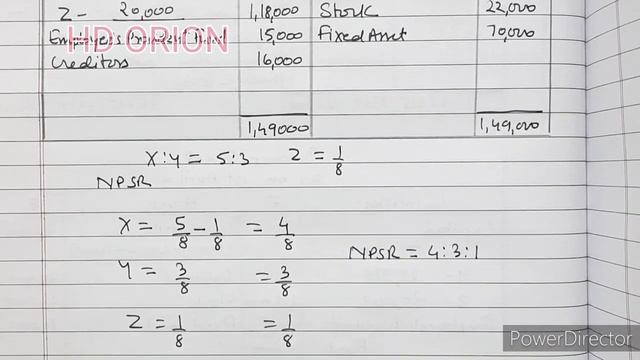 Z - 20,000 1,18,000 Stock 22,000
Employer's Provident Fund 15,000 Fixed Asset 70,000
HD ORION
Creditors 16,000
1,49000 1,49,000
X:Y = 5:3 Z = 1/8
NPSR
X = 5/8 - 1/8 = 4/8
NPSR = 4:3:1
Y = 3/8 = 3/8
Z = 1/8 = 1/8
PowerDirector